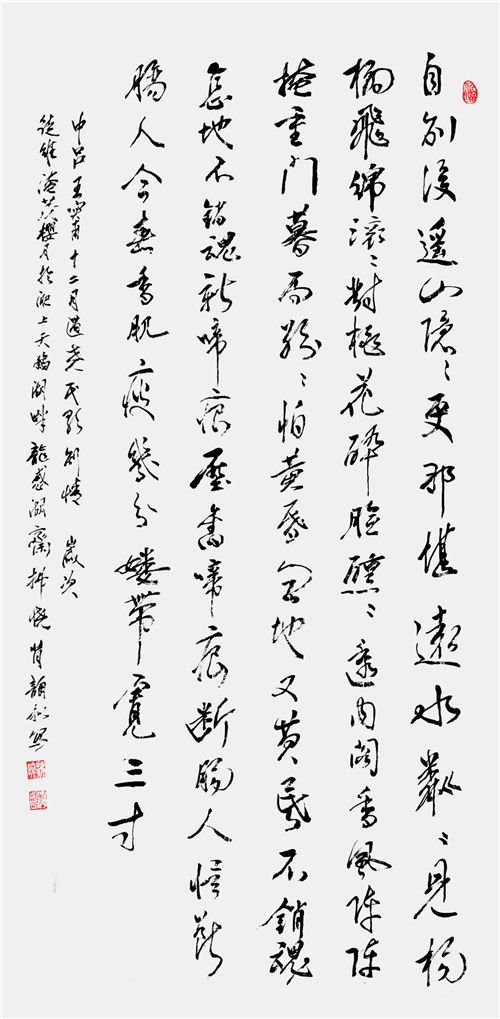 自別後遥山隱〻更那堪遠水粼〻見楊
柳飛綿滾〻對桃花醉臉醺〻透內閣香風陣陣
掩重門暮雨紛〻怕黃昏忽地又黃昏不銷魂
怎地不銷魂新啼痕壓舊啼痕斷腸人憶斷
腸人今春香肌瘦幾分摟帶寬三寸
中呂王實甫十二月過堯民歌別情 歲次
徒維淹茂櫻月於淝上天鵝湖畔龍感湖齋拂曉時韻秋寫